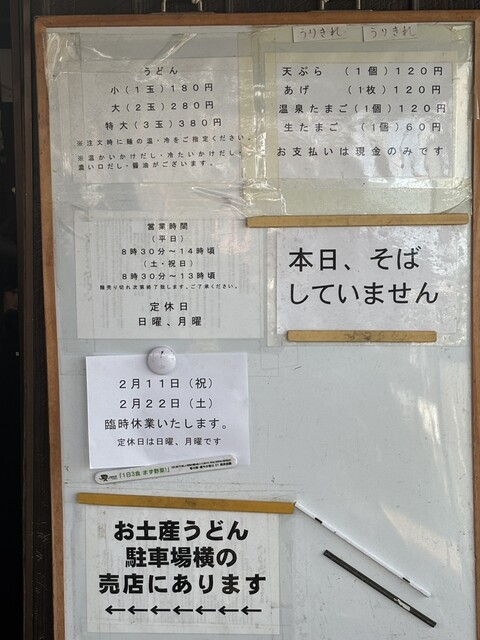 うりきれ うりきれ
うどん
小(1玉)180円
大(2玉)280円
特大(3玉)380円
※注文時に麺の温・冷をご指定ください。
※温かいかけだし・冷たいかけだし・
濃い口だし・醤油がございます。
天ぷら (1個)120円
あげ (1枚)120円
温泉たまご(1個)120円
生たまご (1個)60円
お支払いは現金のみです
営業時間
(平日)
8時30分～14時頃
(土・祝日)
8時30分～13時頃
麺売り切れ次第終了致します。ご了承ください。
定休日
日曜、月曜
本日、そば
していません
2月11日(祝)
2月22日(土)
臨時休業いたします。
定休日は日曜、月曜です
「1日3食 まず野菜!」
お土産うどん
駐車場横の
売店にあります
←←←←←←←